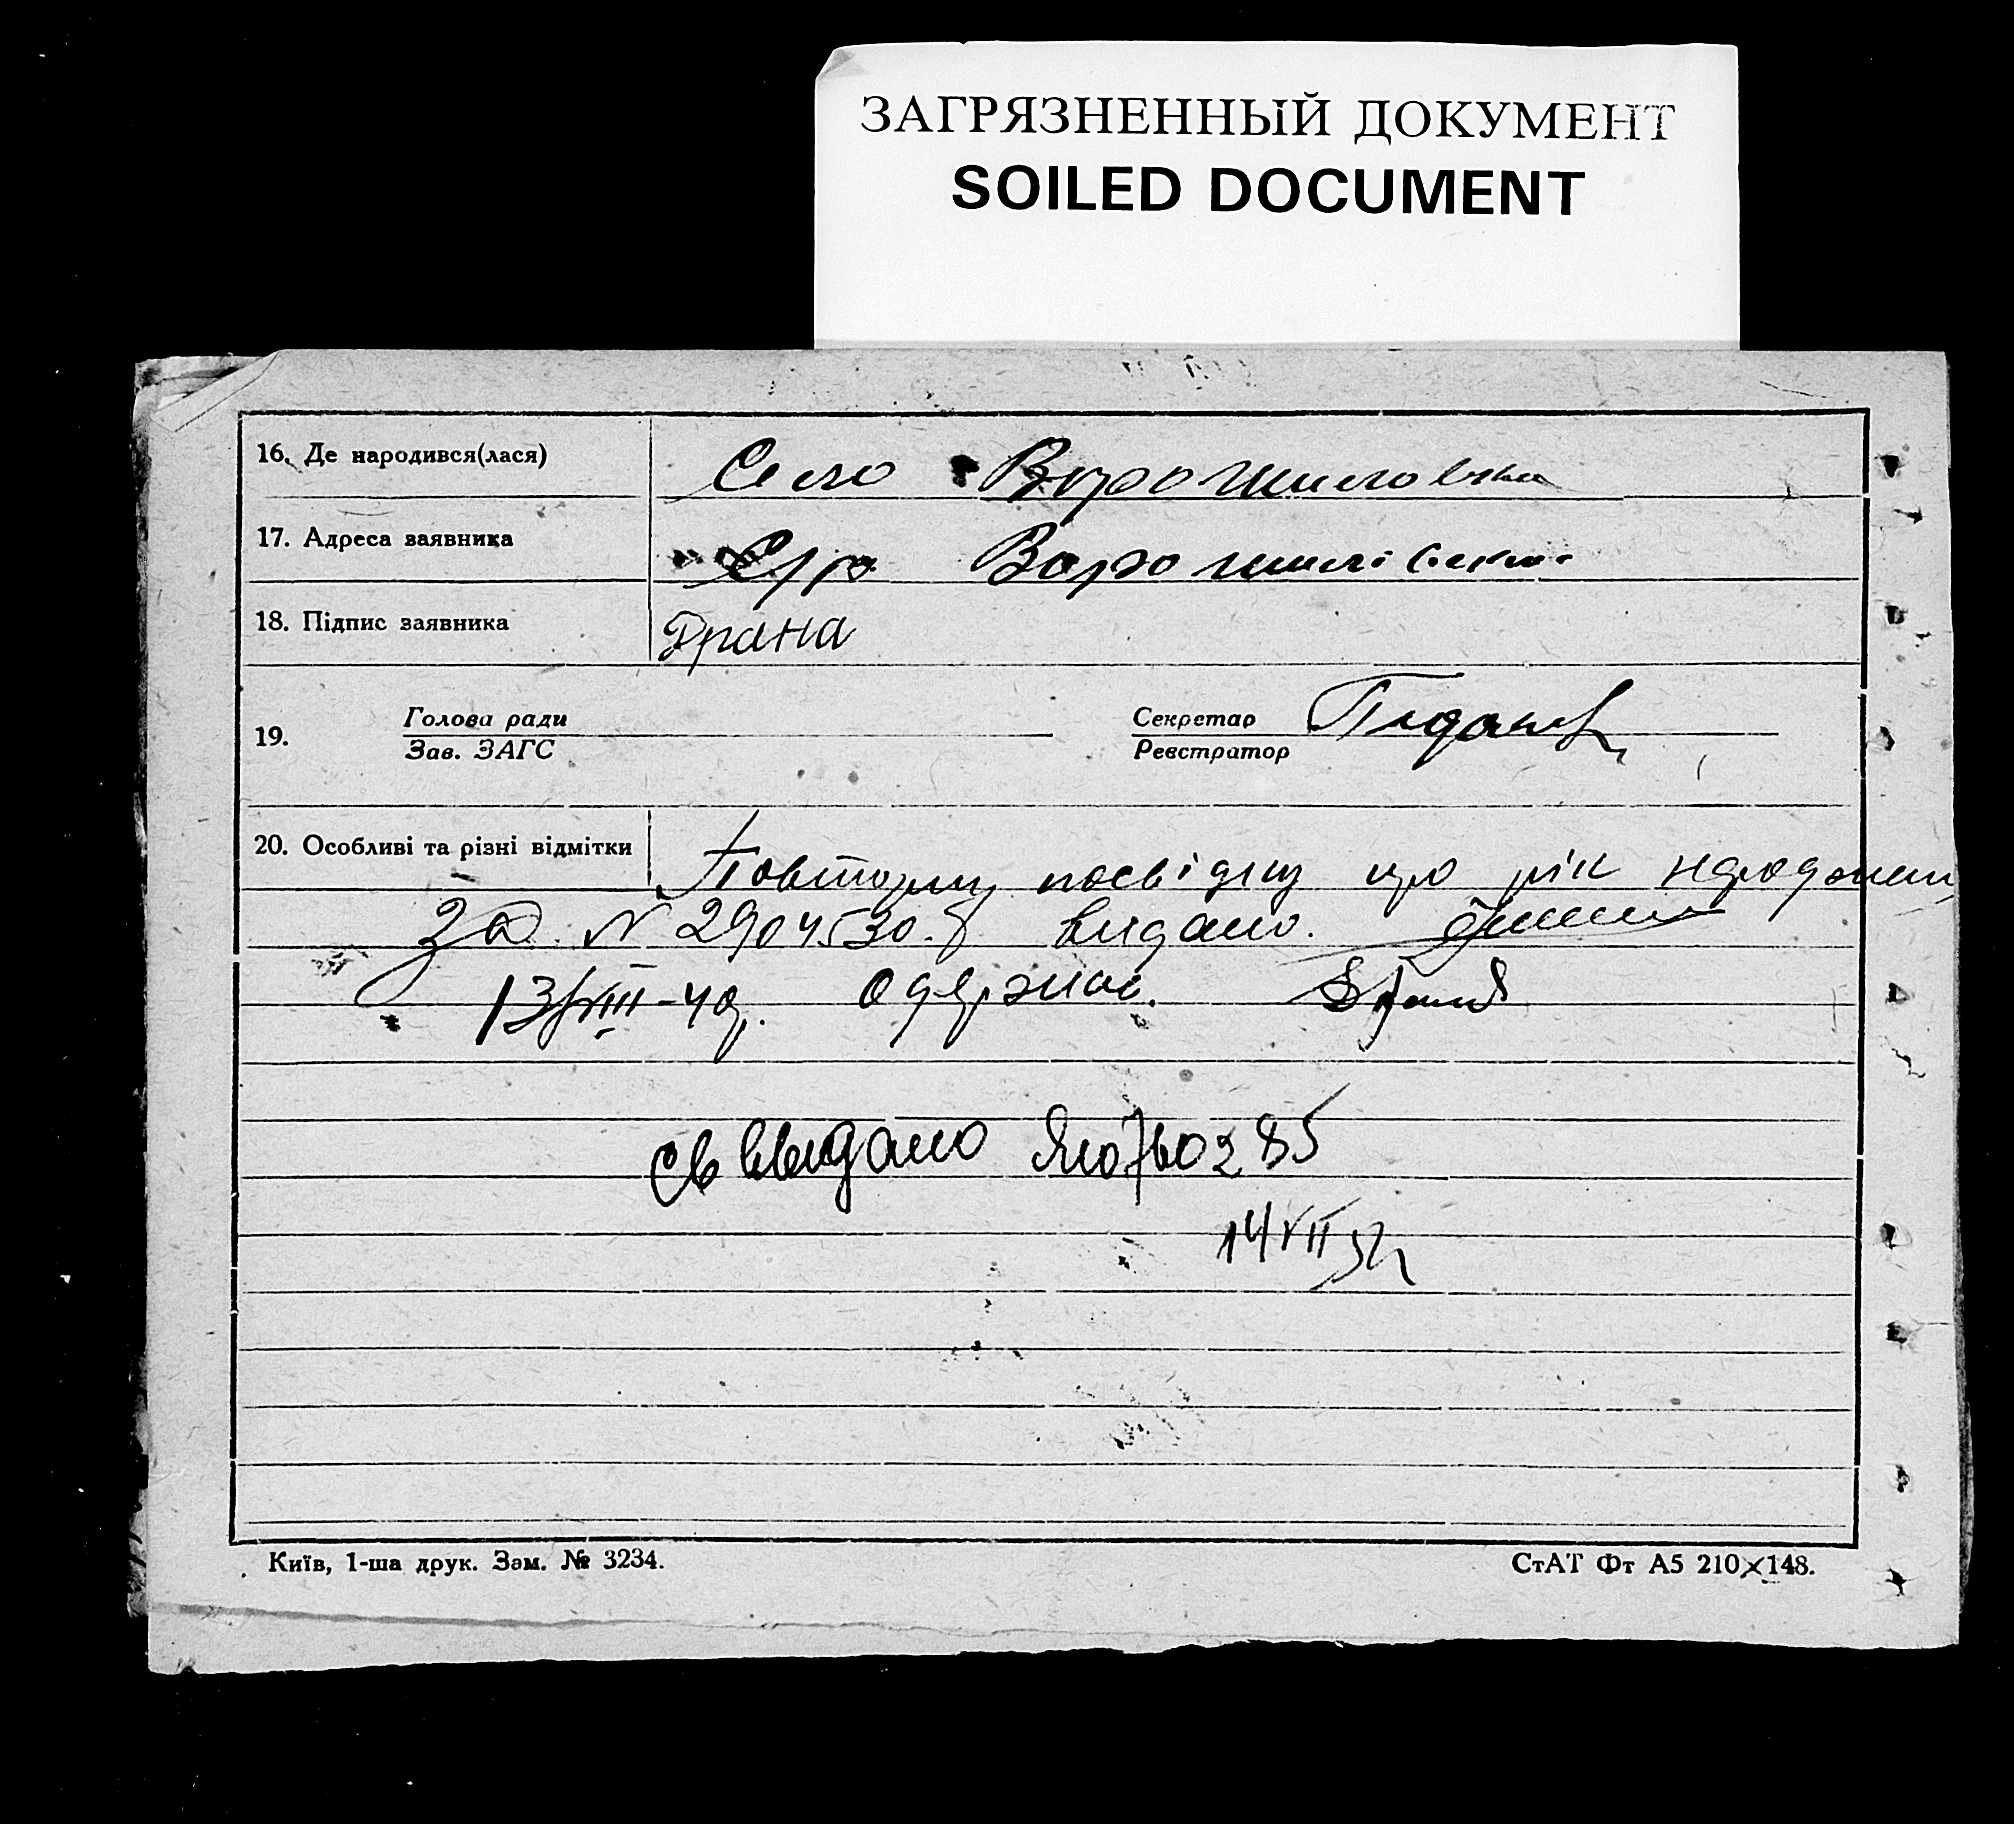 ЗАГРЯЗНЕННЫЙ ДОКУМЕНТ
SOILED DOCUMENT
16. Де народився(лася) Село Ворошиловка
17. Адреса заявника Ворошилівка
18. Підпис заявника
19. Голова ради Секретар
Зав. ЗАГС Реєстратор
20. Особливі та різні відмітки Повторну посвідку про рік народження
за N 2904530 видано.
13/VIII-40р. одержав.
св ввидано 760285
14 VII
Київ, 1-ша друк. Зам. № 3234. СтАТ Фт А5 210×148.